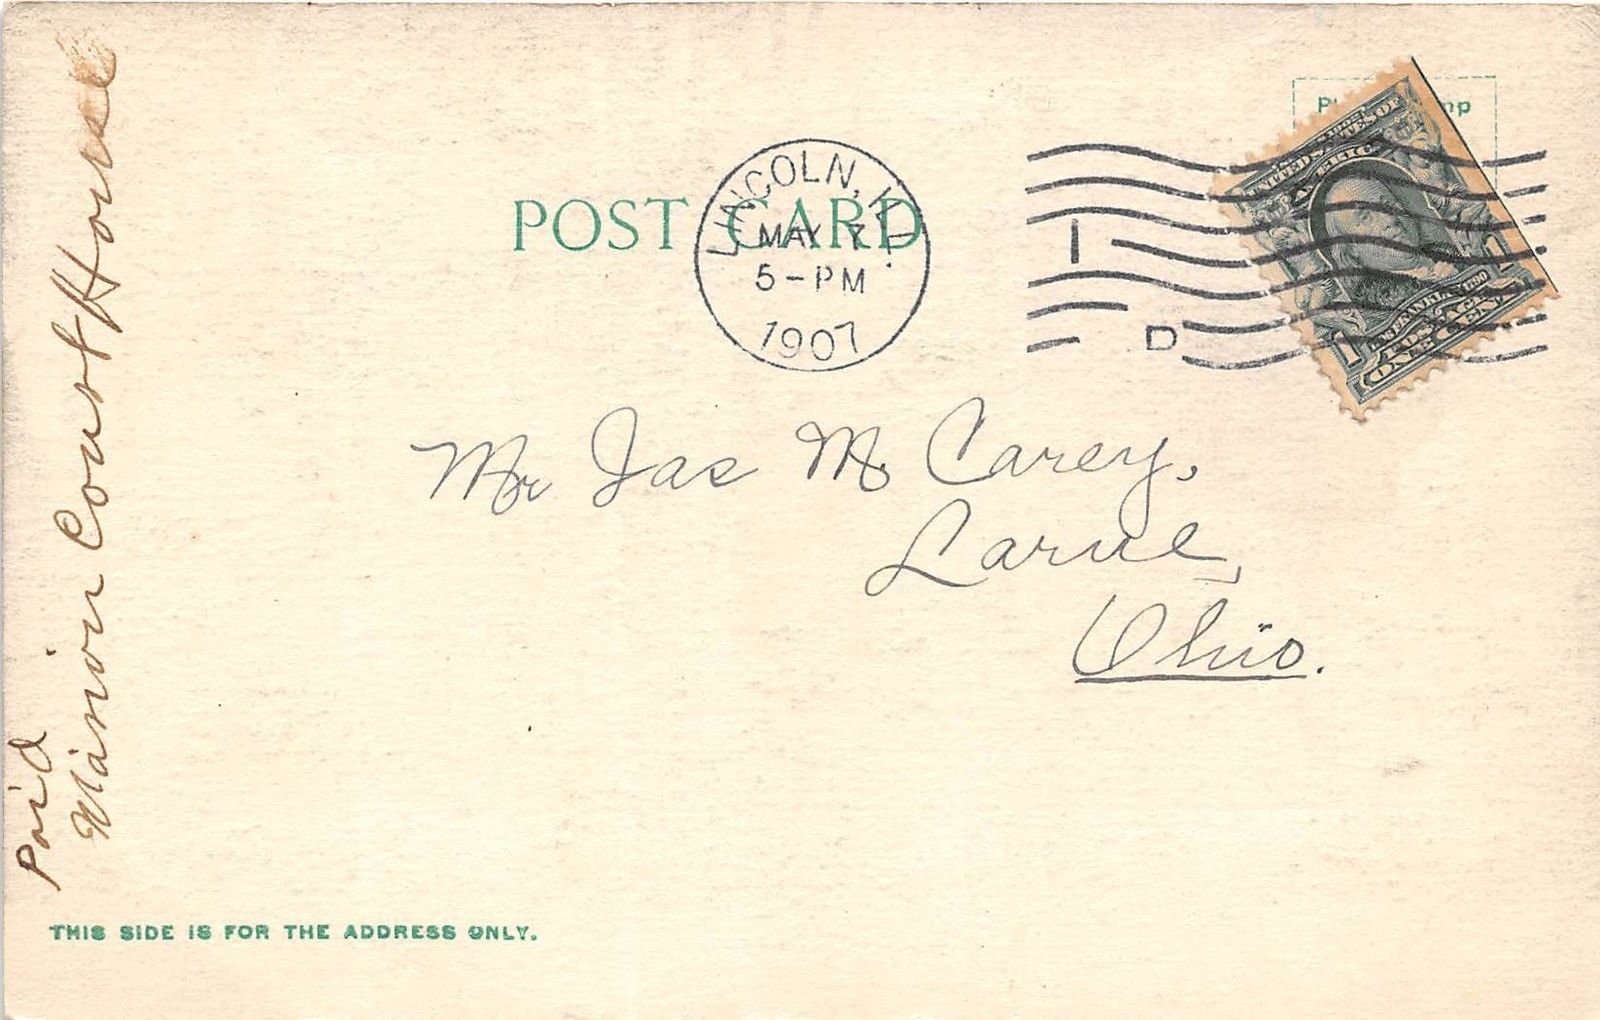 Paid
Marion Court House
POST CARD
LINCOLN, ILL.
MAY 7
5-PM
1907
1
D
UNITED STATES OF
AMERICA
FRANKLIN
ONE CENT
1
Mr Jas M. Carey,
Larue,
Ohio.
THIS SIDE IS FOR THE ADDRESS ONLY.